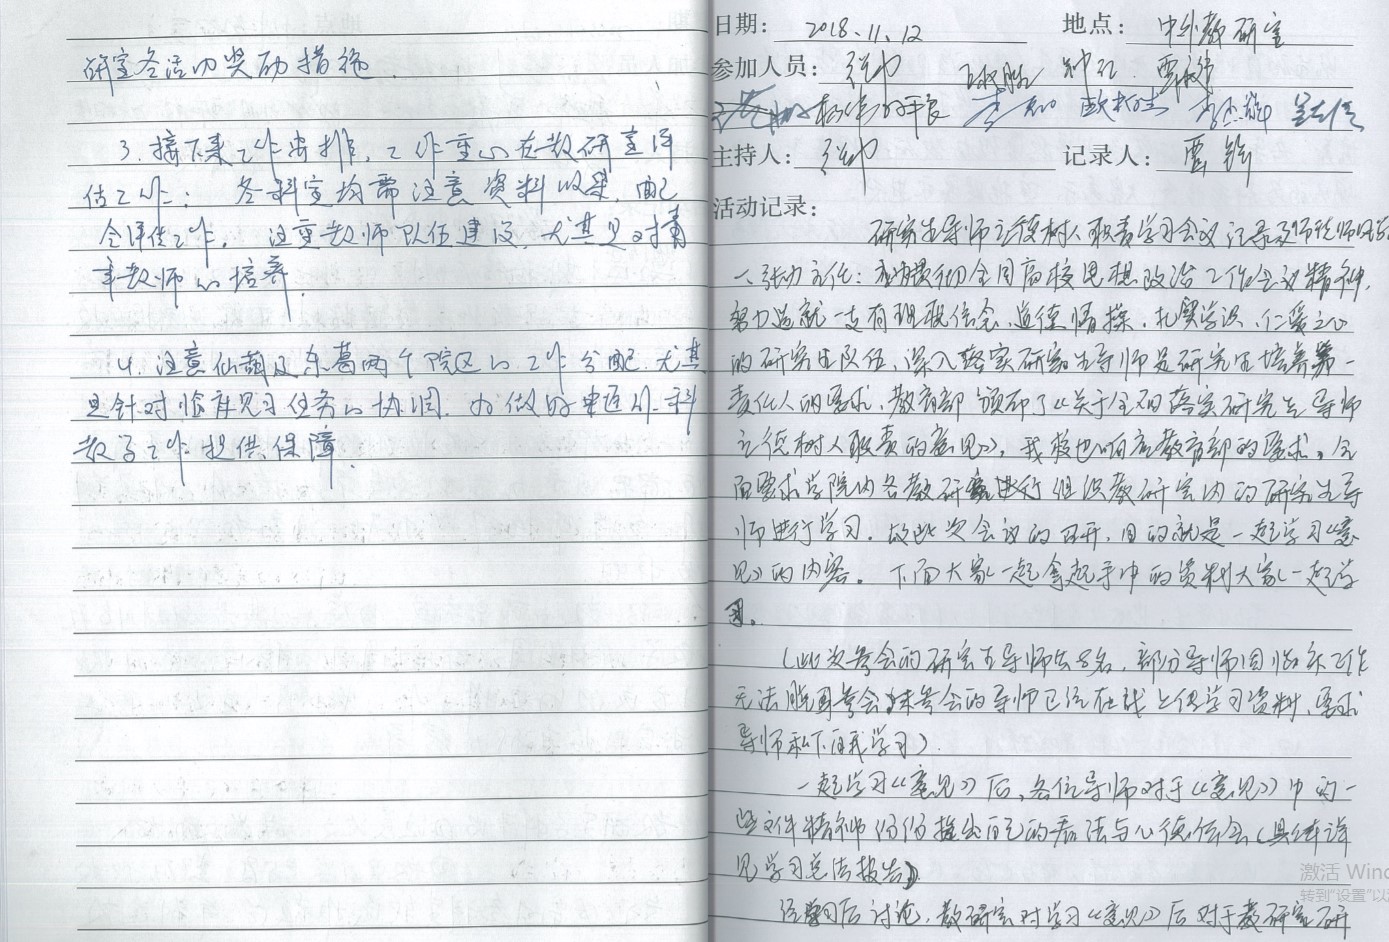 研室各活动奖励措施.
3. 接下来工作安排, 工作重心在教研室评
估工作: 各科室均需注意资料收集, 配
合评估工作. 注重教师队伍建设, 尤其是对青
年教师的培养.
4. 注意仙葫及东葛两个院区的工作分配, 尤其
是针对临床见习任务的协调. 为做好中医外科
教学工作提供保障.
日期: 2018.11.12 地点: 中外教研室
参加人员:
主持人: 记录人:
活动记录:
研究生导师立德树人职责学习会议记录及师德师风
一、主任: 为贯彻全国高校思想政治工作会议精神,
努力造就一支有理想信念、道德情操、扎实学识、仁爱之心
的研究生队伍, 深入落实研究生导师是研究生培养第一
责任人的要求, 教育部颁布了《关于全面落实研究生导师
立德树人职责的意见》, 我校也响应教育部的要求, 全
面要求学院内各教研室进行组织教研室内的研究生导
师进行学习. 故此次会议的召开, 目的就是一起学习《意
见》的内容. 下面大家一起拿起手中的资料大家一起学
习。
(此次参会的研究生导师共8名, 部分导师因临床工作
无法脱身参会, 未参会的导师已经在线上供学习资料, 要求
导师私下自我学习).
一起学习《意见》后, 各位导师对于《意见》中的一
些文件精神份份提出自己的看法与心得体会(具体详
见学习总结报告)
经学习后讨论, 教研室对学习《意见》后对于教研室研
激活 Wind
转到"设置"以